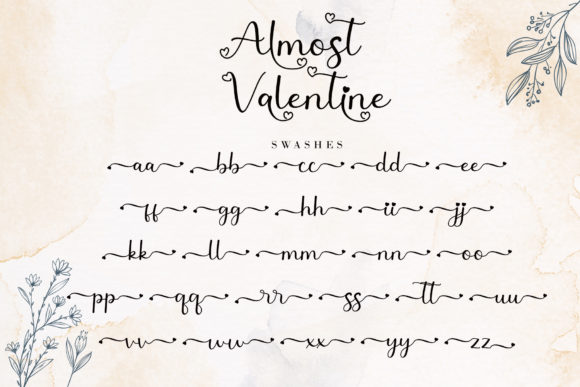 Almost
Valentine
SWASHES
aa bb cc dd ee
ff gg hh ii jj
kk ll mm nn oo
pp qq rr ss tt uu
vv ww xx yy zz